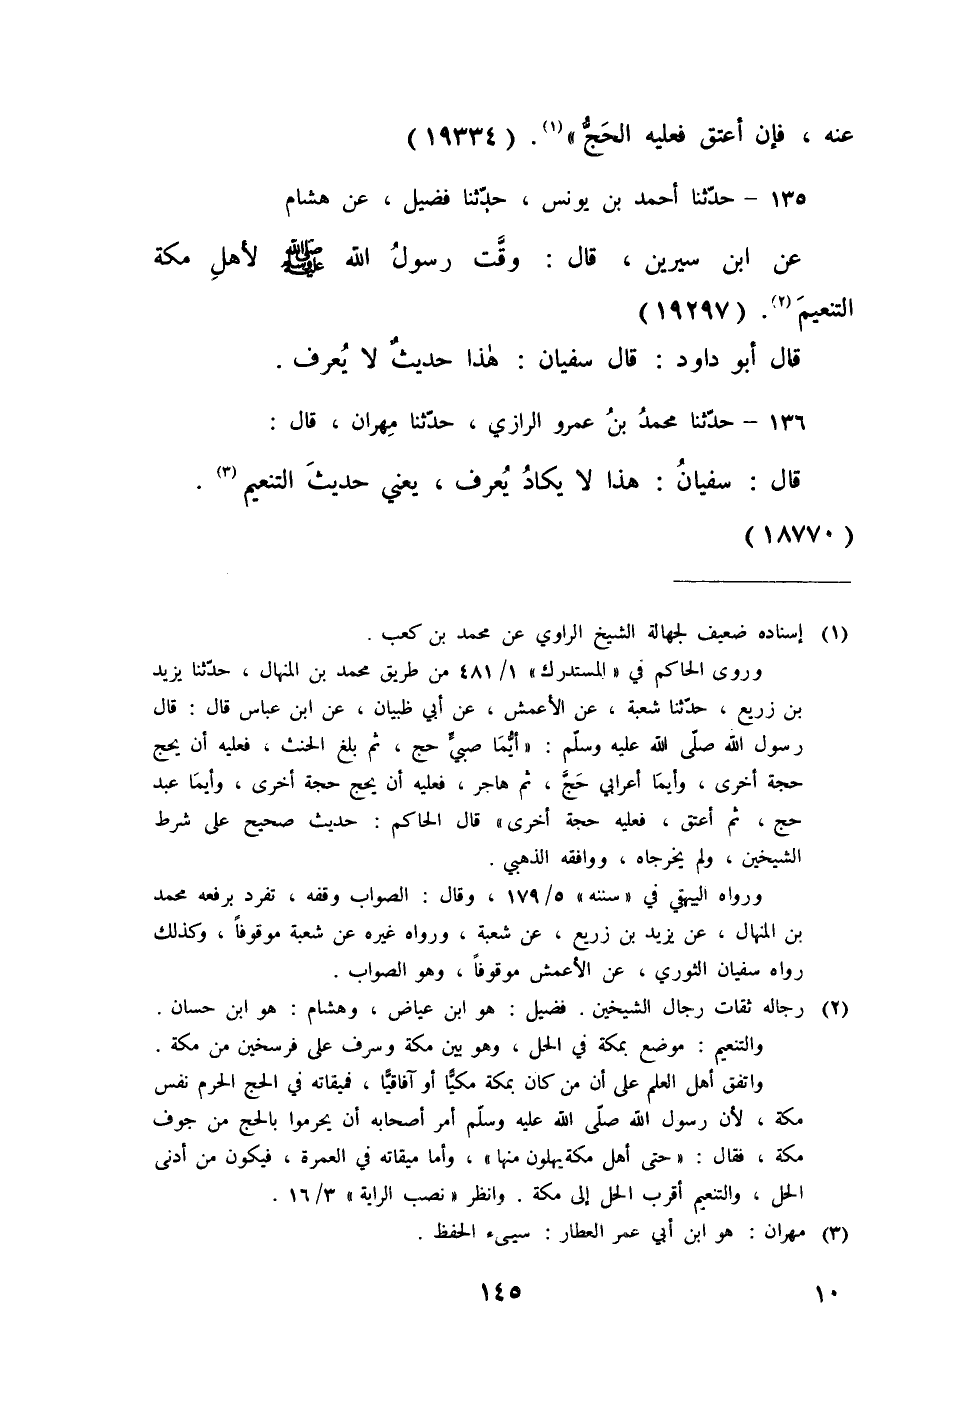 عنه ، فإن أعتق فعليه الحَجُّ »(١) . ( ١٩٣٣٤ )
١٣٥ – حدّثنا أحمد بن يونس ، حدّثنا فضيل ، عن هشام
عن ابن سيرين ، قال : وقَّت رسولُ الله ﷺ لأهلِ مكة
التنعيمَ(٢) . ( ١٩٢٩٧ )
قال أبو داود : قال سفيان : هٰذا حديثٌ لا يُعرف .
١٣٦ – حدّثنا محمدُ بنُ عمرو الرازي ، حدّثنا مِهران ، قال :
قال : سفيانُ : هذا لا يكادُ يُعرف ، يعني حديثَ التنعيم(٣) .
( ١٨٧٧٠ )
(١) إسناده ضعيف لجهالة الشيخ الراوي عن محمد بن كعب .
وروى الحاكم في « المستدرك » ١/ ٤٨١ من طريق محمد بن المنهال ، حدّثنا يزيد
بن زريع ، حدّثنا شعبة ، عن الأعمش ، عن أبي ظبيان ، عن ابن عباس قال : قال
رسول الله صلّى الله عليه وسلّم : « أيُّمَا صبيٍّ حج ، ثم بلغ الحنث ، فعليه أن يحج
حجة أخرى ، وأيمَا أعرابي حَجَّ ، ثم هاجر ، فعليه أن يحج حجة أخرى ، وأيمَا عبد
حج ، ثم أعتق ، فعليه حجة أخرى » قال الحاكم : حديث صحيح على شرط
الشيخين ، ولم يخرجاه ، ووافقه الذهبي .
ورواه البيهقي في « سننه » ٥/ ١٧٩ ، وقال : الصواب وقفه ، تفرد برفعه محمد
بن المنهال ، عن يزيد بن زريع ، عن شعبة ، ورواه غيره عن شعبة موقوفاً ، وكذلك
رواه سفيان الثوري ، عن الأعمش موقوفاً ، وهو الصواب .
(٢) رجاله ثقات رجال الشيخين . فضيل : هو ابن عياض ، وهشام : هو ابن حسان .
والتنعيم : موضع بمكة في الحل ، وهو بين مكة وسرف على فرسخين من مكة .
واتفق أهل العلم على أن من كان بمكة مكيًّا أو آفاقيًّا ، فميقاته في الحج الحرم نفس
مكة ، لأن رسول الله صلّى الله عليه وسلّم أمر أصحابه أن يحرموا بالحج من جوف
مكة ، فقال : « حتى أهل مكة يهلون منها » ، وأما ميقاته في العمرة ، فيكون من أدنى
الحل ، والتنعيم أقرب الحل إلى مكة . وانظر « نصب الراية » ٣/ ١٦ .
(٣) مهران : هو ابن أبي عمر العطار : سيىء الحفظ .
١٤٥ ١٠